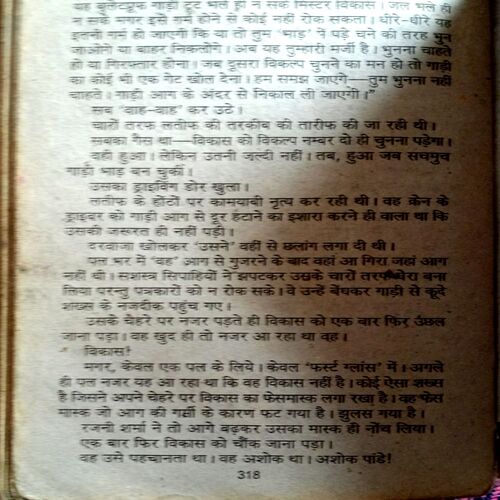 यह बुलेटप्रूफ गाड़ी टूट भले ही न सके मिस्टर विकास। जल भले ही
न सके मगर इसे गर्म होने से कोई नहीं रोक सकता। धीरे-धीरे यह
इतनी गर्म हो जाएगी कि या तो तुम 'भाड़' में पड़े चने की तरह भुन
जाओगे या बाहर निकलोगे। अब यह तुम्हारी मर्जी है। भुनना चाहते
हो या गिरफ्तार होना। जब दूसरा विकल्प चुनने का मन हो तो गाड़ी
का कोई भी एक गेट खोल देना। हम समझ जाएंगे—तुम भुनना नहीं
चाहते। गाड़ी आग के अंदर से निकाल ली जाएगी।”
सब 'वाह-वाह' कर उठे।
चारों तरफ लतीफ की तरकीब की तारीफ की जा रही थी।
सबका गैस था—विकास को विकल्प नम्बर दो ही चुनना पड़ेगा।
वही हुआ। लेकिन उतनी जल्दी नहीं। तब, हुआ जब सचमुच
गाड़ी भाड़ बन चुकी।
उसका ड्राइविंग डोर खुला।
लतीफ के होंटों पर कामयाबी नृत्य कर रही थी। वह क्रेन के
ड्राइवर को गाड़ी आग से दूर हटाने का इशारा करने ही वाला था कि
उसकी जरूरत ही नहीं पड़ी।
दरवाजा खोलकर 'उसने' वहीं से छलांग लगा दी थी।
पल भर में 'वह' आग से गुजरने के बाद वहां आ गिरा जहां आग
नहीं थी। सशस्त्र सिपाहियों ने झपटकर उसके चारों तरफ घेरा बना
लिया परन्तु पत्रकारों को न रोक सके। वे उन्हें बेंधकर गाड़ी से कूदे
शख्स के नजदीक पहुंच गए।
उसके चेहरे पर नजर पड़ते ही विकास को एक बार फिर उछल
जाना पड़ा। वह खुद ही तो नजर आ रहा था वह।
विकास!
मगर, केवल एक पल के लिये। केवल 'फर्स्ट ग्लांस' में। अगले
ही पल नजर यह आ रहा था कि वह विकास नहीं है। कोई ऐसा शख्स
है जिसने अपने चेहरे पर विकास का फेसमास्क लगा रखा है। वह फेस
मास्क जो आग की गर्मी के कारण फट गया है। झुलस गया है।
रजनी शर्मा ने तो आगे बढ़कर उसका मास्क ही नोंच लिया।
एक बार फिर विकास को चौंक जाना पड़ा।
वह उसे पहचानता था। वह अशोक था। अशोक पांडे!
318